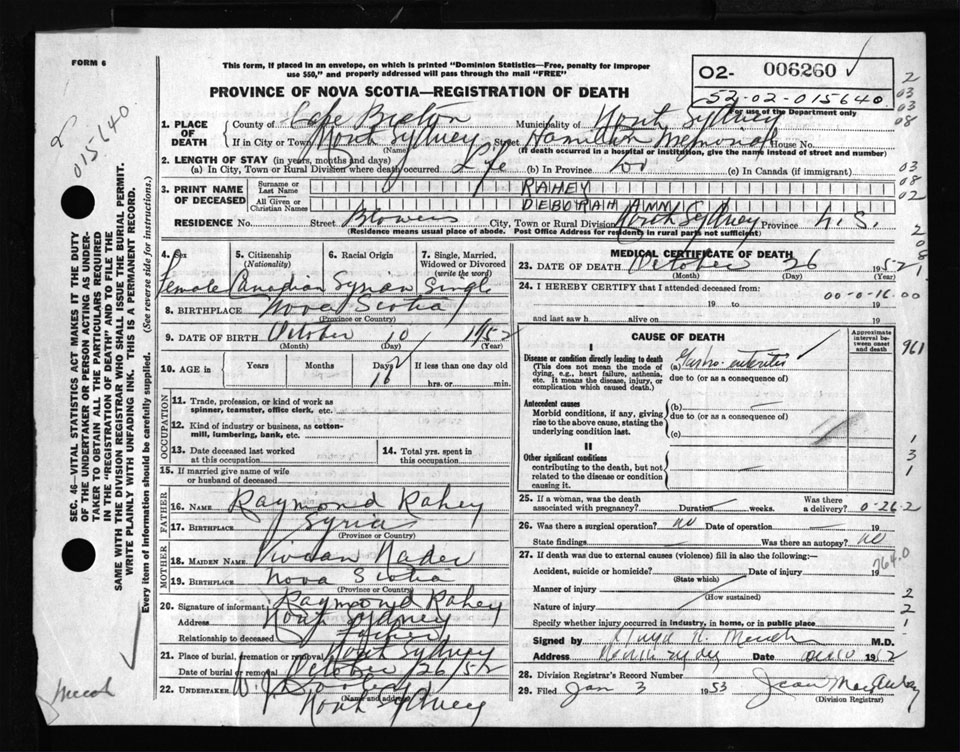 FORM 6
This form, if placed in an envelope, on which is printed "Dominion Statistics—Free, penalty for improper
use $50," and properly addressed will pass through the mail "FREE"
PROVINCE OF NOVA SCOTIA—REGISTRATION OF DEATH
O2- 006260
52-02-015640
For use of the Department only
2
03
03
08
015640
SEC. 46—VITAL STATISTICS ACT MAKES IT THE DUTY
OF THE UNDERTAKER OR PERSON ACTING AS UNDER-
TAKER TO OBTAIN ALL THE PARTICULARS REQUIRED
IN THE "REGISTRATION OF DEATH" AND TO FILE THE
SAME WITH THE DIVISION REGISTRAR WHO SHALL ISSUE THE BURIAL PERMIT.
WRITE PLAINLY WITH UNFADING INK. THIS IS A PERMANENT RECORD.
Every item of information should be carefully supplied. (See reverse side for instructions.)
1. PLACE OF DEATH
County of Cape Breton Municipality of North Sydney
If in City or Town North Sydney Street Hamilton Memorial House No.
(Name) (If death occurred in a hospital or institution, give the name instead of street and number)
2. LENGTH OF STAY (in years, months and days)
(a) In City, Town or Rural Division where death occurred Life (b) In Province do (c) In Canada (if immigrant)
03
08
02
3. PRINT NAME OF DECEASED
Surname or Last Name RAHEY
All Given or Christian Names DEBORAH ANN
RESIDENCE No. Street Blowers City, Town or Rural Division North Sydney Province N.S.
(Residence means usual place of abode. Post Office Address for residents in rural parts not sufficient)
4. Sex Female
5. Citizenship (Nationality) Canadian
6. Racial Origin Syrian
7. Single, Married, Widowed or Divorced (write the word) Single
8. BIRTHPLACE Nova Scotia
(Province or Country)
9. DATE OF BIRTH October 10 1952
(Month) (Day) (Year)
10. AGE in Years Months Days 16 If less than one day old
hrs. or min.
OCCUPATION
11. Trade, profession, or kind of work as
spinner, teamster, office clerk, etc.
12. Kind of industry or business, as cotton-
mill, lumbering, bank, etc.
13. Date deceased last worked
at this occupation
14. Total yrs. spent in
this occupation
15. If married give name of wife
or husband of deceased
FATHER
16. Name Raymond Rahey
17. Birthplace Syria
(Province or Country)
MOTHER
18. Maiden Name Vivian Nader
19. Birthplace Nova Scotia
(Province or Country)
20. Signature of informant Raymond Rahey
Address North Sydney
Relationship to deceased Father
21. Place of burial, cremation or removal North Sydney
Date of burial or removal October 26 / 52
22. Undertaker
(Name and address)
North Sydney
MEDICAL CERTIFICATE OF DEATH
23. DATE OF DEATH October 26 1952
(Month) (Day) (Year)
24. I HEREBY CERTIFY that I attended deceased from:
00-0-16.00
19 to 19
and last saw h alive on 19
CAUSE OF DEATH
Approximate interval between onset and death
961
I
Disease or condition directly leading to death
(This does not mean the mode of
dying, e.g., heart failure, asthenia,
etc. It means the disease, injury, or
complication which caused death.)
(a) Gastro-enteritis
due to (or as a consequence of)
Antecedent causes
Morbid conditions, if any, giving
rise to the above cause, stating the
underlying condition last.
(b)
due to (or as a consequence of)
(c)
II
Other significant conditions
contributing to the death, but not
related to the disease or condition
causing it.
1
3
1
25. If a woman, was the death
associated with pregnancy? Duration weeks. Was there
a delivery? 0-26-2
26. Was there a surgical operation? no Date of operation 19
State findings Was there an autopsy? no
27. If death was due to external causes (violence) fill in also the following:
764.0
Accident, suicide or homicide? Date of injury 19
(State which)
Manner of injury
(How sustained)
Nature of injury
Specify whether injury occurred in industry, in home, or in public place
2
2
1
Signed by M.D.
Address North Sydney Date 1952
28. Division Registrar's Record Number
29. Filed Jan 3 1953
(Division Registrar)